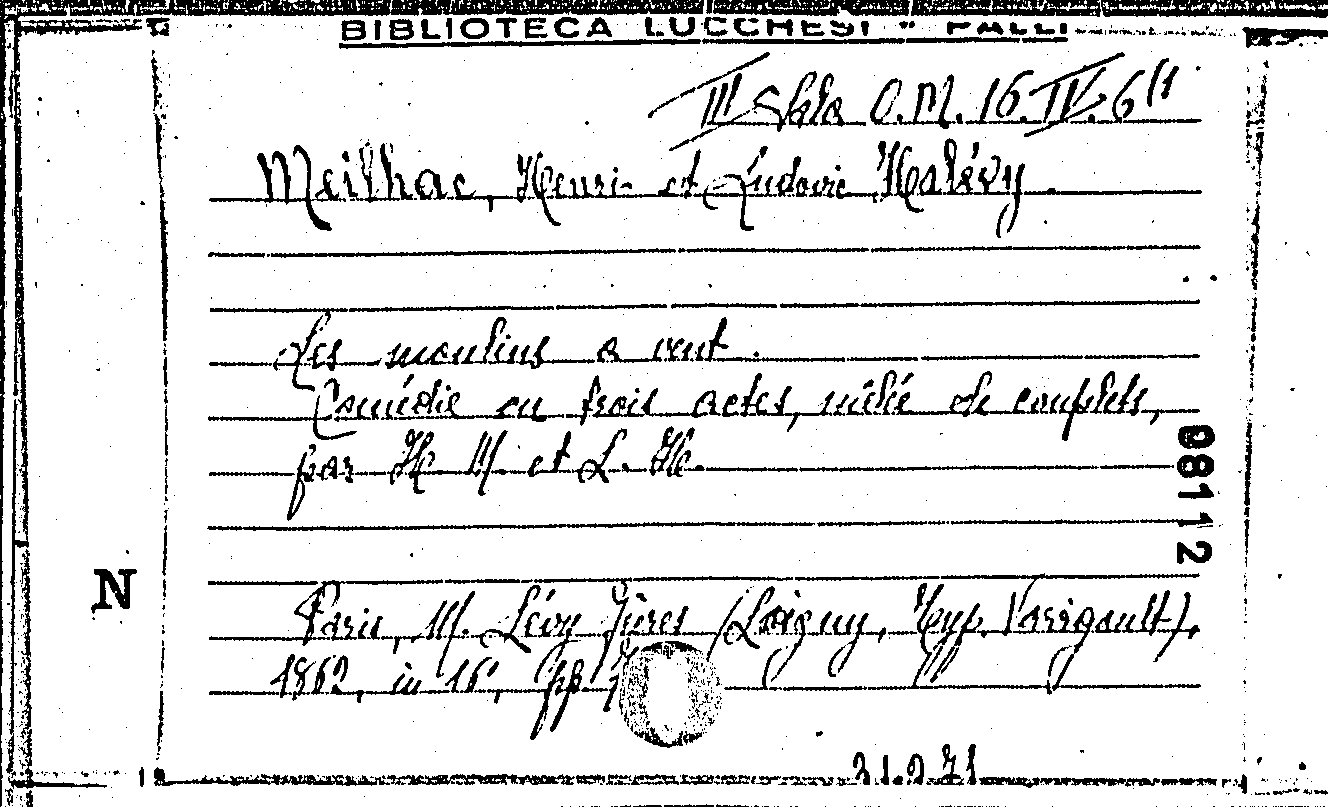 BIBLIOTECA LUCCHESI - PALLI
III Sala O.M. 16.IV.6(1
Meilhac, Henri et Ludovic Halévy.
Les moulins a vent.
Comédie en trois actes, mêlée de couplets,
par H. M. et L. H.
Paris, M. Lévy Frères (Lagny, Typ. Varigault),
1862, in 16°, pp
88112
N